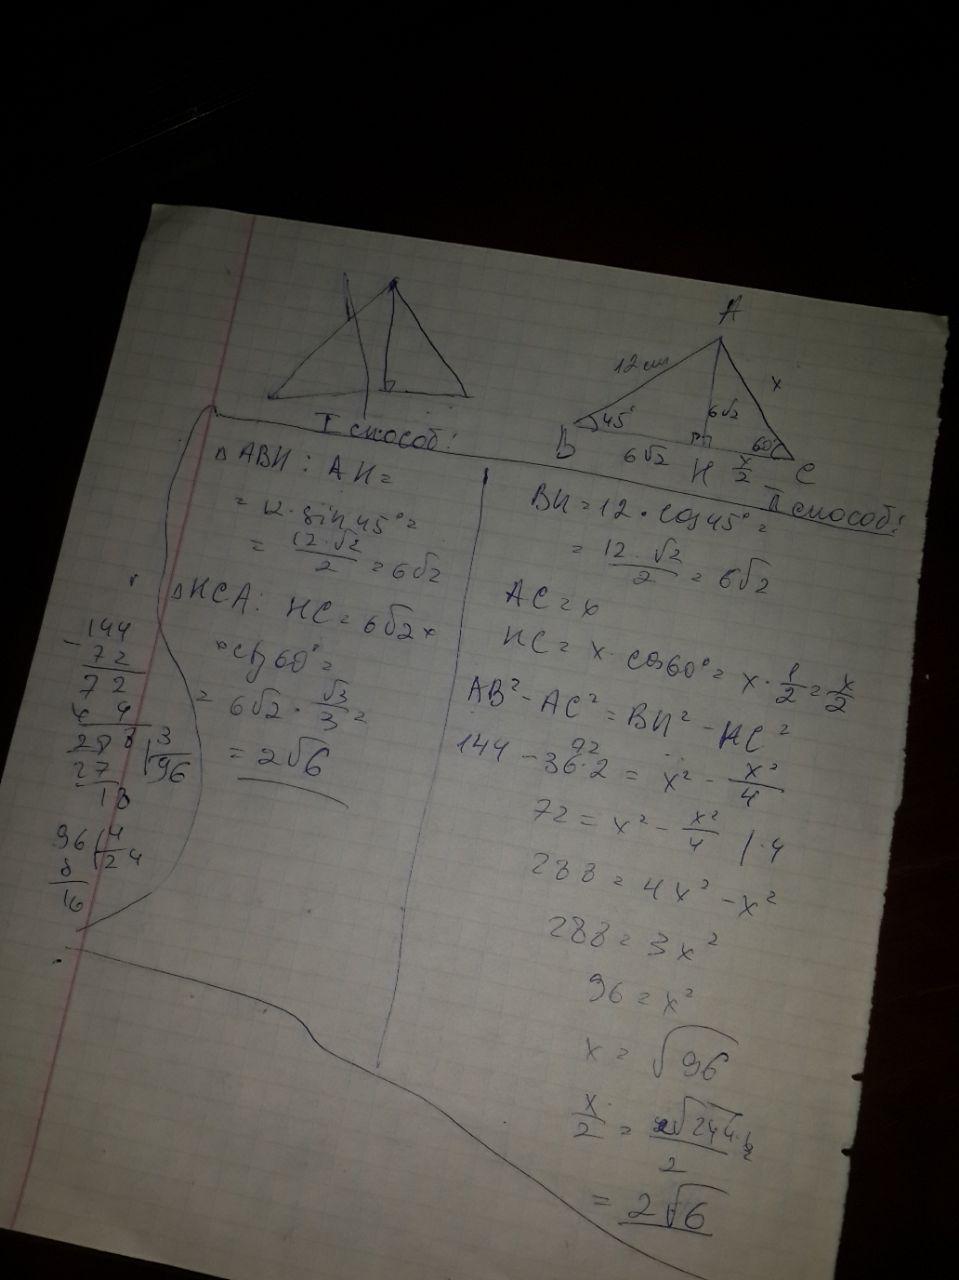 A
12 см
x
45°
6√2
60°
B
6√2
H
x/2
C
I способ:
△ABH: AH =
= 12 · sin 45° =
= 12·√2/2 = 6√2
△HCA: HC = 6√2 ×
× ctg 60° =
= 6√2 · √3/3 =
= 2√6
144
- 72
72
288 | 3
27 | 96
18
96 | 4
8 | 24
16
II способ:
BH = 12 · cos 45° =
= 12·√2/2 = 6√2
AC = x
HC = x · cos 60° = x · 1/2 = x/2
AB² - AC² = BH² - HC²
72
144 - 36·2 = x² - x²/4
72 = x² - x²/4 | ·4
288 = 4x² - x²
288 = 3x²
96 = x²
x = √96
x/2 =
2
= 2√6